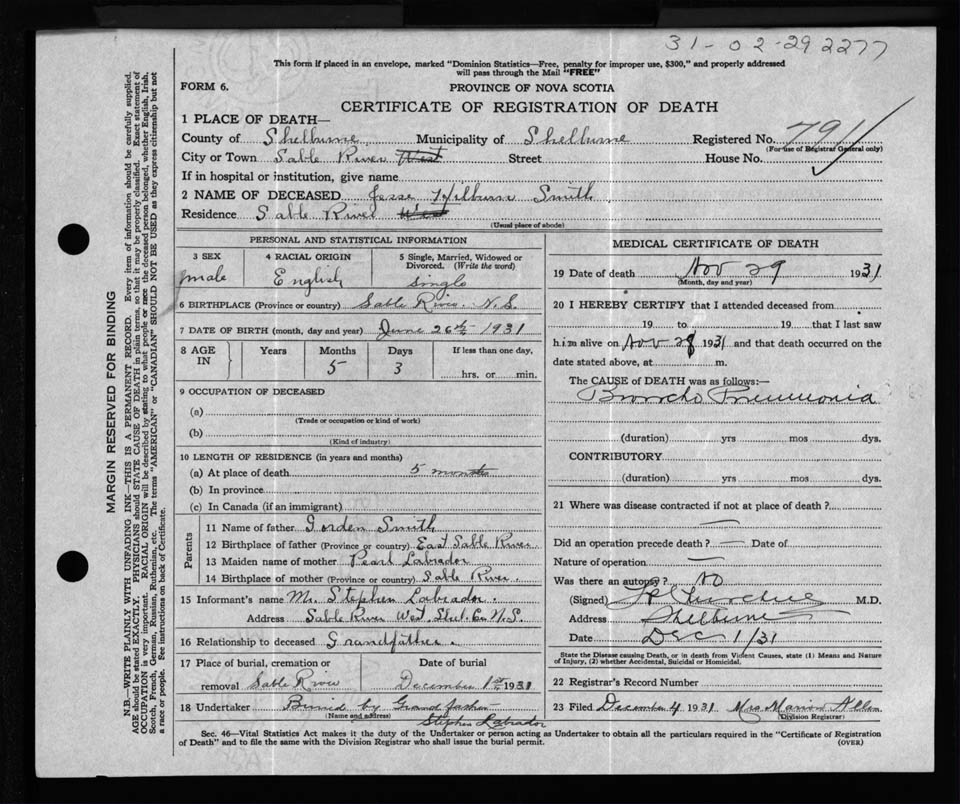 31-02-29 2277
This form if placed in an envelope, marked "Dominion Statistics—Free, penalty for improper use, $300," and properly addressed
will pass through the Mail "FREE"
FORM 6.
PROVINCE OF NOVA SCOTIA
CERTIFICATE OF REGISTRATION OF DEATH
1 PLACE OF DEATH—
County of Shelburne Municipality of Shelburne Registered No. 791
(For use of Registrar General only)
City or Town Sable River West Street House No.
If in hospital or institution, give name
2 NAME OF DECEASED Jesse Hilburne Smith
Residence Sable River West
(Usual place of abode)
PERSONAL AND STATISTICAL INFORMATION
3 SEX
male
4 RACIAL ORIGIN
English
5 Single, Married, Widowed or
Divorced. (Write the word)
Single
6 BIRTHPLACE (Province or country) Sable River. N.S.
7 DATE OF BIRTH (month, day and year) June 26th 1931
8 AGE
IN
Years Months Days If less than one day,
5 3
hrs. or min.
9 OCCUPATION OF DECEASED
(a)
(Trade or occupation or kind of work)
(b)
(Kind of industry)
10 LENGTH OF RESIDENCE (in years and months)
(a) At place of death 5 months
(b) In province
(c) In Canada (if an immigrant)
Parents
11 Name of father Gorden Smith
12 Birthplace of father (Province or country) East Sable River
13 Maiden name of mother Pearl Labrador
14 Birthplace of mother (Province or country) Sable River.
15 Informant's name Mr. Stephen Labrador.
Address Sable River West Shel. Co. N.S.
16 Relationship to deceased Grandfather.
17 Place of burial, cremation or
removal Sable River
Date of burial
December 1st 1931
18 Undertaker Buried by Grand father
(Name and address)
Stephen Labrador
MEDICAL CERTIFICATE OF DEATH
19 Date of death Nov 29 1931
(Month, day and year)
20 I HEREBY CERTIFY that I attended deceased from
19 to 19 that I last saw
him alive on Nov 28 1931 and that death occurred on the
date stated above, at m.
The CAUSE of DEATH was as follows:—
Broncho Pneumonia
(duration) yrs mos dys.
CONTRIBUTORY
(duration) yrs mos dys.
21 Where was disease contracted if not at place of death?
—
Did an operation precede death? — Date of
Nature of operation —
Was there an autopsy? No
(Signed) M.D.
Address Shelburne
Date Dec 1/31
State the Disease causing Death, or in death from Violent Causes, state (1) Means and Nature
of Injury, (2) whether Accidental, Suicidal or Homicidal.
22 Registrar's Record Number
23 Filed December 4 1931 Mrs Marion Allen
(Division Registrar)
Sec. 46—Vital Statistics Act makes it the duty of the Undertaker or person acting as Undertaker to obtain all the particulars required in the "Certificate of Registration
of Death" and to file the same with the Division Registrar who shall issue the burial permit.
(OVER)
MARGIN RESERVED FOR BINDING
N.B.—WRITE PLAINLY WITH UNFADING INK—THIS IS A PERMANENT RECORD. Every item of information should be carefully supplied.
AGE should be stated EXACTLY. PHYSICIANS should STATE CAUSE OF DEATH in plain terms, so that it may be properly classified. Exact statement of
OCCUPATION is very important. RACIAL ORIGIN will be described by stating to what people or race the deceased person belonged, whether English, Irish,
Scotch, French, German, Russian, Ruthenian, etc. The terms "AMERICAN" or "CANADIAN" SHOULD NOT BE USED as they express citizenship but not
a race or people. See instructions on back of Certificate.